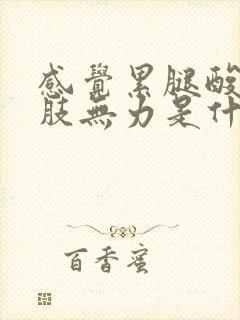 感覺累腿酸
肢無力是什
百香蜜